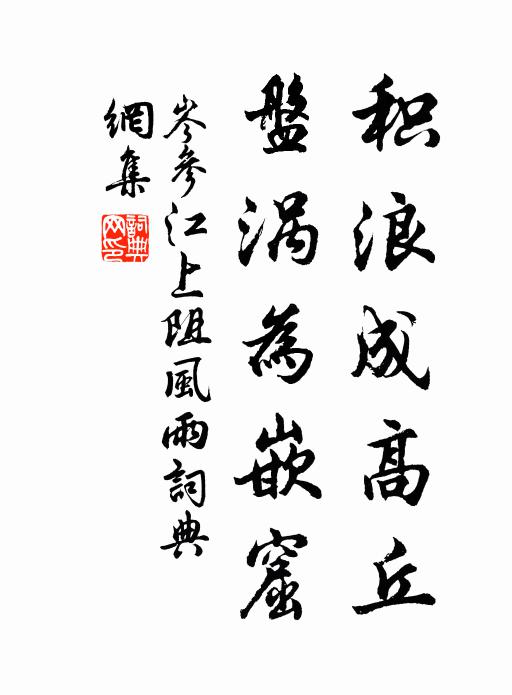 积浪成高丘
盤涡為嵌窟
岑參江上阻風雨詞典
網集
詞典
网印